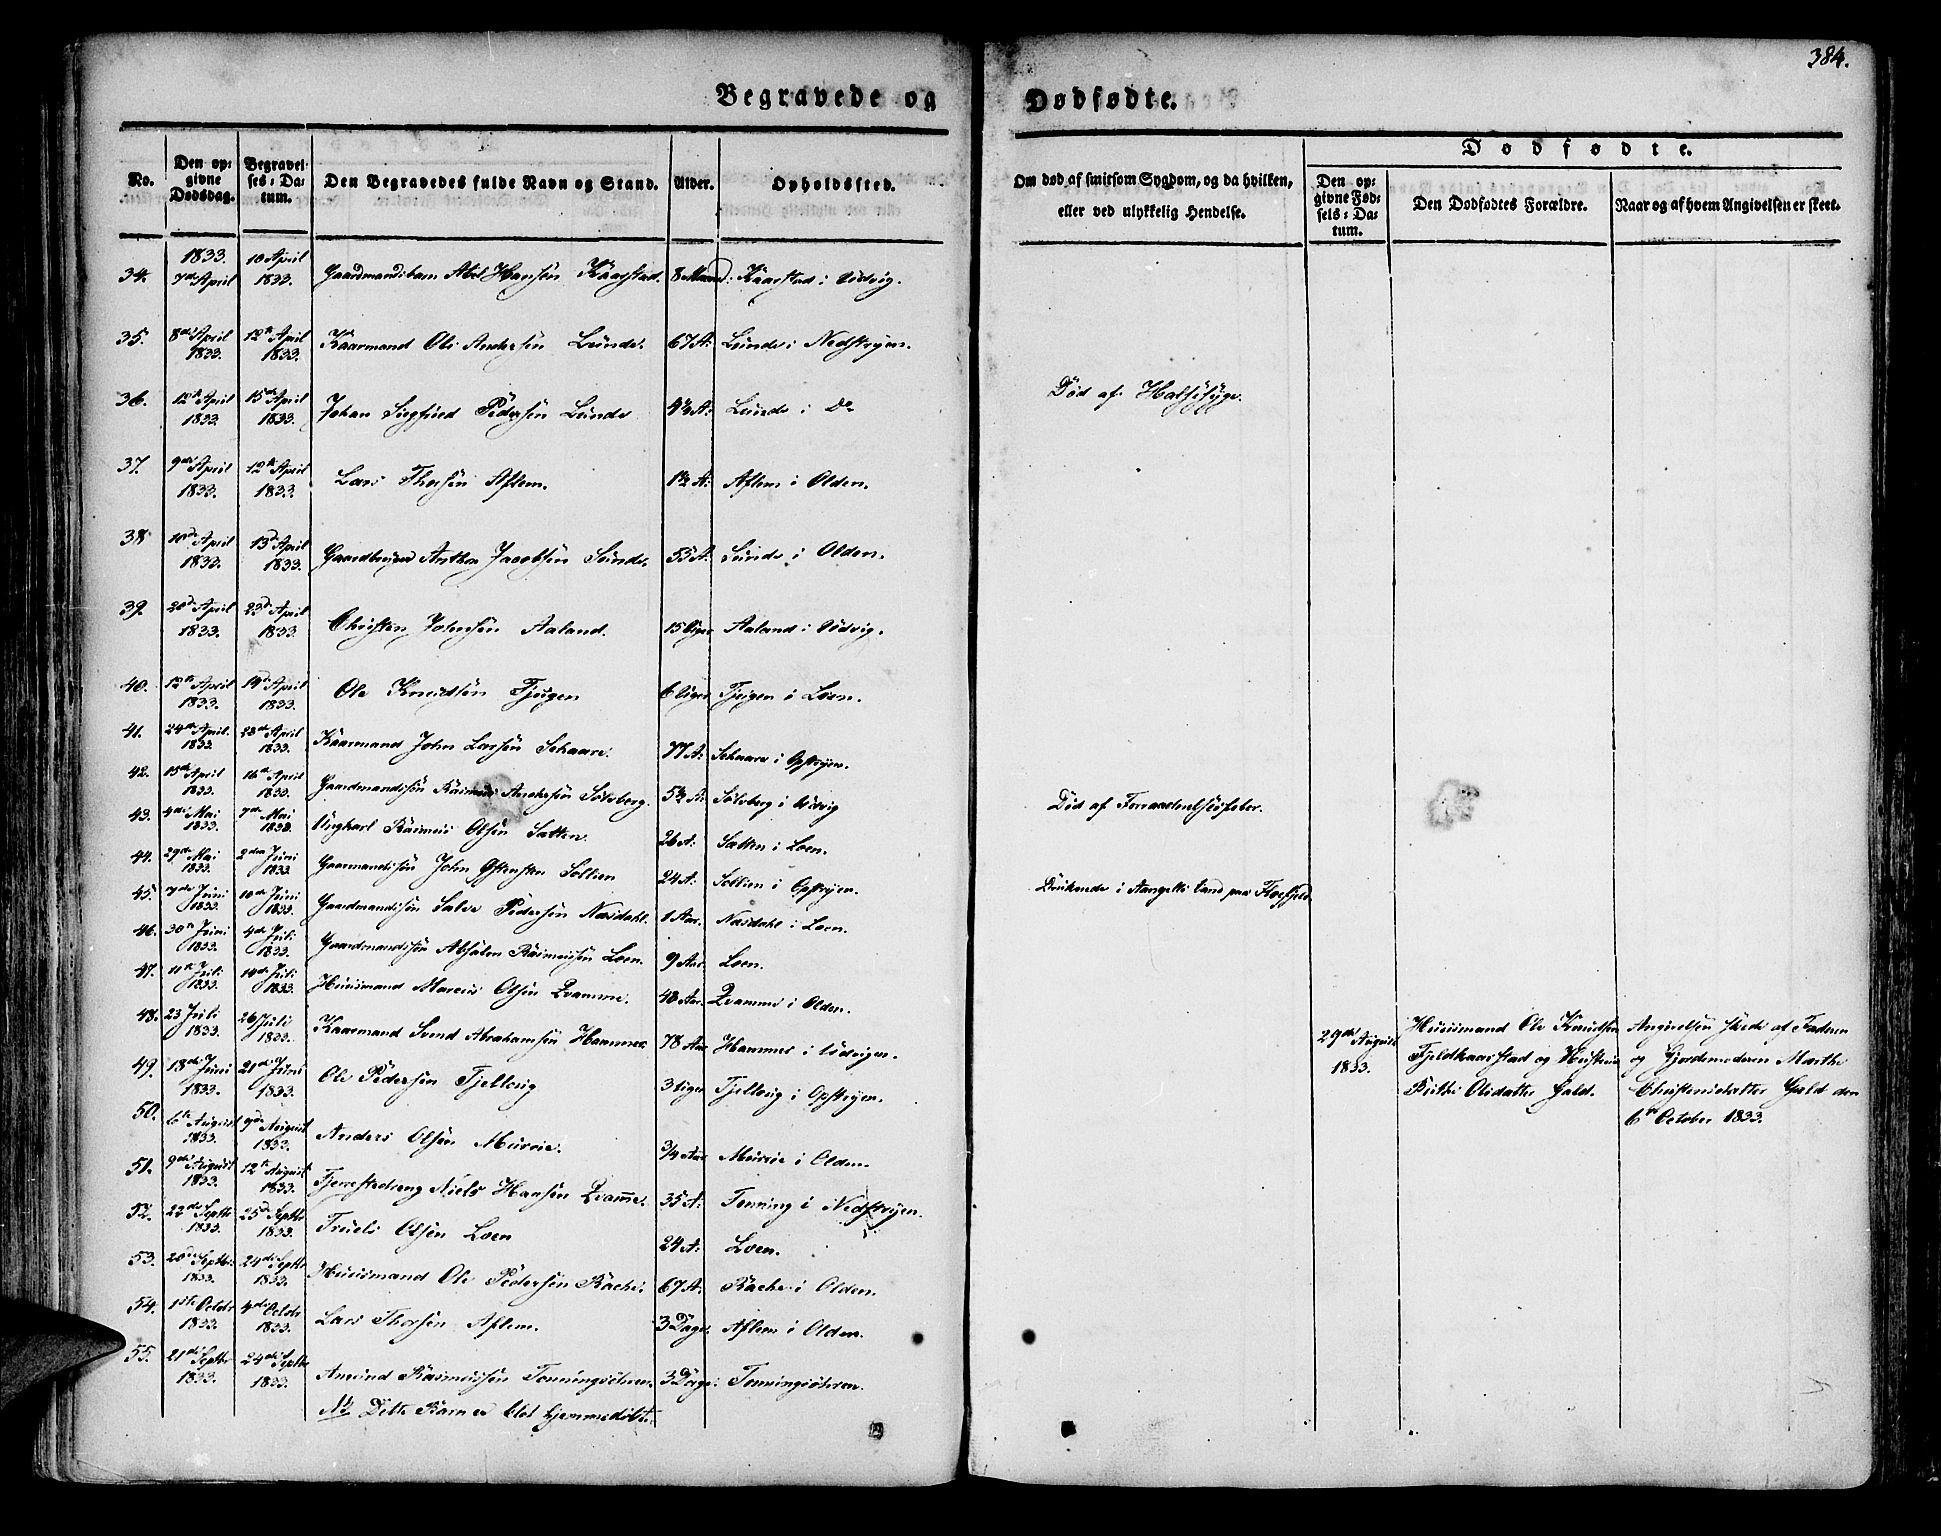 384.
Begravede og Dødfødte.
No. Den opgivne Dødsdag. Begravelses-Datum. Den Begravedes fulde Navn og Stand. Alder. Opholdssted. Om død af smitsom Sygdom, og da hvilken, eller ved ulykkelig Hendelse. Dødfødte. Den opgivne Fødsels-Datum. Den Dødfødtes Forældre. Naar og af hvem Angivelsen er skeet.
34. 1833. 7de April 10 April 1833. Gaardmandsbarn Abel Hansen Kaarstad. 8 Kaarstad i Udvig.
35. 8de April 1833. 12te April 1833. Kaarmand Ole Andersen Lunde. 67 A: Lunde i Nedstryen.
36. 12te April 1833. 15de April 1833. Johan Sigfried Pedersen Lunde 4½ A: Lunde i Do Død af Halssyge.
37. 9de April 1833. 12te April 1833. Lars Thorsen Aflem. 1½ A: Aflem i Olden.
38 10d April 1833. 13d April 1833. Gaardbruger Anthon Jacobsen Sunde. 53 A. Sunde i Olden.
39. 20d April 1833. 23d April 1833. Christen Johnsen Aaland. 15 Uger Aaland i Udvig.
40. 12te April 1833. 14d April 1833. Ole Knudsen Tjugen 6 Uger Tjugen i Loen.
41. 24de April. 1833 28de April 1833. Kaarmand John Larsen Schaare. 77 A: Schaare i Opstryen.
42. 15de April 1833. 16de April 1833. Gaardmandssøn Rasmus Andersen Sølvberg. 5½ A: Sølvberg i Udvig Død af
43. 4de Mai 1833. 7de Mai 1833. Ungkarl Rasmus Olsen Sætten. 26 A: Sætten i Loen.
44. 29de Mai 1833. 2den Juni 1833. Gaarmandssøn John Sollien 24 A: Sollien i Opstryen. Druknede i land paa
45. 7de Juni 1833. 10de Juni 1833. Gaardmandssøn Salve Pedersen Næsdahl. 1 Aar. Næsdahl i Loen.
46. 30te Juni 1833. 4de Juli 1833. Gaardmandssøn Absalon Rasmussen Loen. 9 Aar. Loen.
47. 11te Juli 1833. 14de Juli 1833. Huusmand Marcus Olsen Qvamme. 48 Aar. Qvamme i Olden.
48. 23 Juli 1833. 26 Juli 1833. Kaarmand Svend Abrahamsen Hammer 78 Aar Hammer i Udvigen. 29de August 1833. Huusmand Ole Knudsen Fjeldkaarstad og Hustrue Birthe Olsdatter Hald. Angivelsen skede af Faderen og Gjordemoderen Marthe Christensdatter Hjald den 6te October 1833.
49. 18de Juni 1833. 21de Juni 1833. Ole Pedersen Tjellaug 3 Uger Tjellaug i Opstryen.
50. 6te August 1833. 9de August 1833. Anders Olsen Muurie. 3/4 Aar Muurie i Olden.
51. 9de August 1833. 12te August 1833. Niels Hansen Qvamme. 35 A: Tenning i Nedstryen.
52. 22de Septbr 1833. 25d Septbr 1833. Truels Olsen Loen 24 A: Loen.
53. 20de Septbr: 1833. 24de Septbr 1833. Huusmand Ole Pedersen Rache. 67 A: Rache i Olden.
54. 1ste Octobr 1833. 4de Octobr 1833. Lars Thorsen Aflem. 3 Dage. Aflem i Olden.
55. 21de Septbr 1833. 24de Septbr 1833. Amund Rasmussen 3 Dage.
Nb Dette Barn er blot hjemmedøbt.